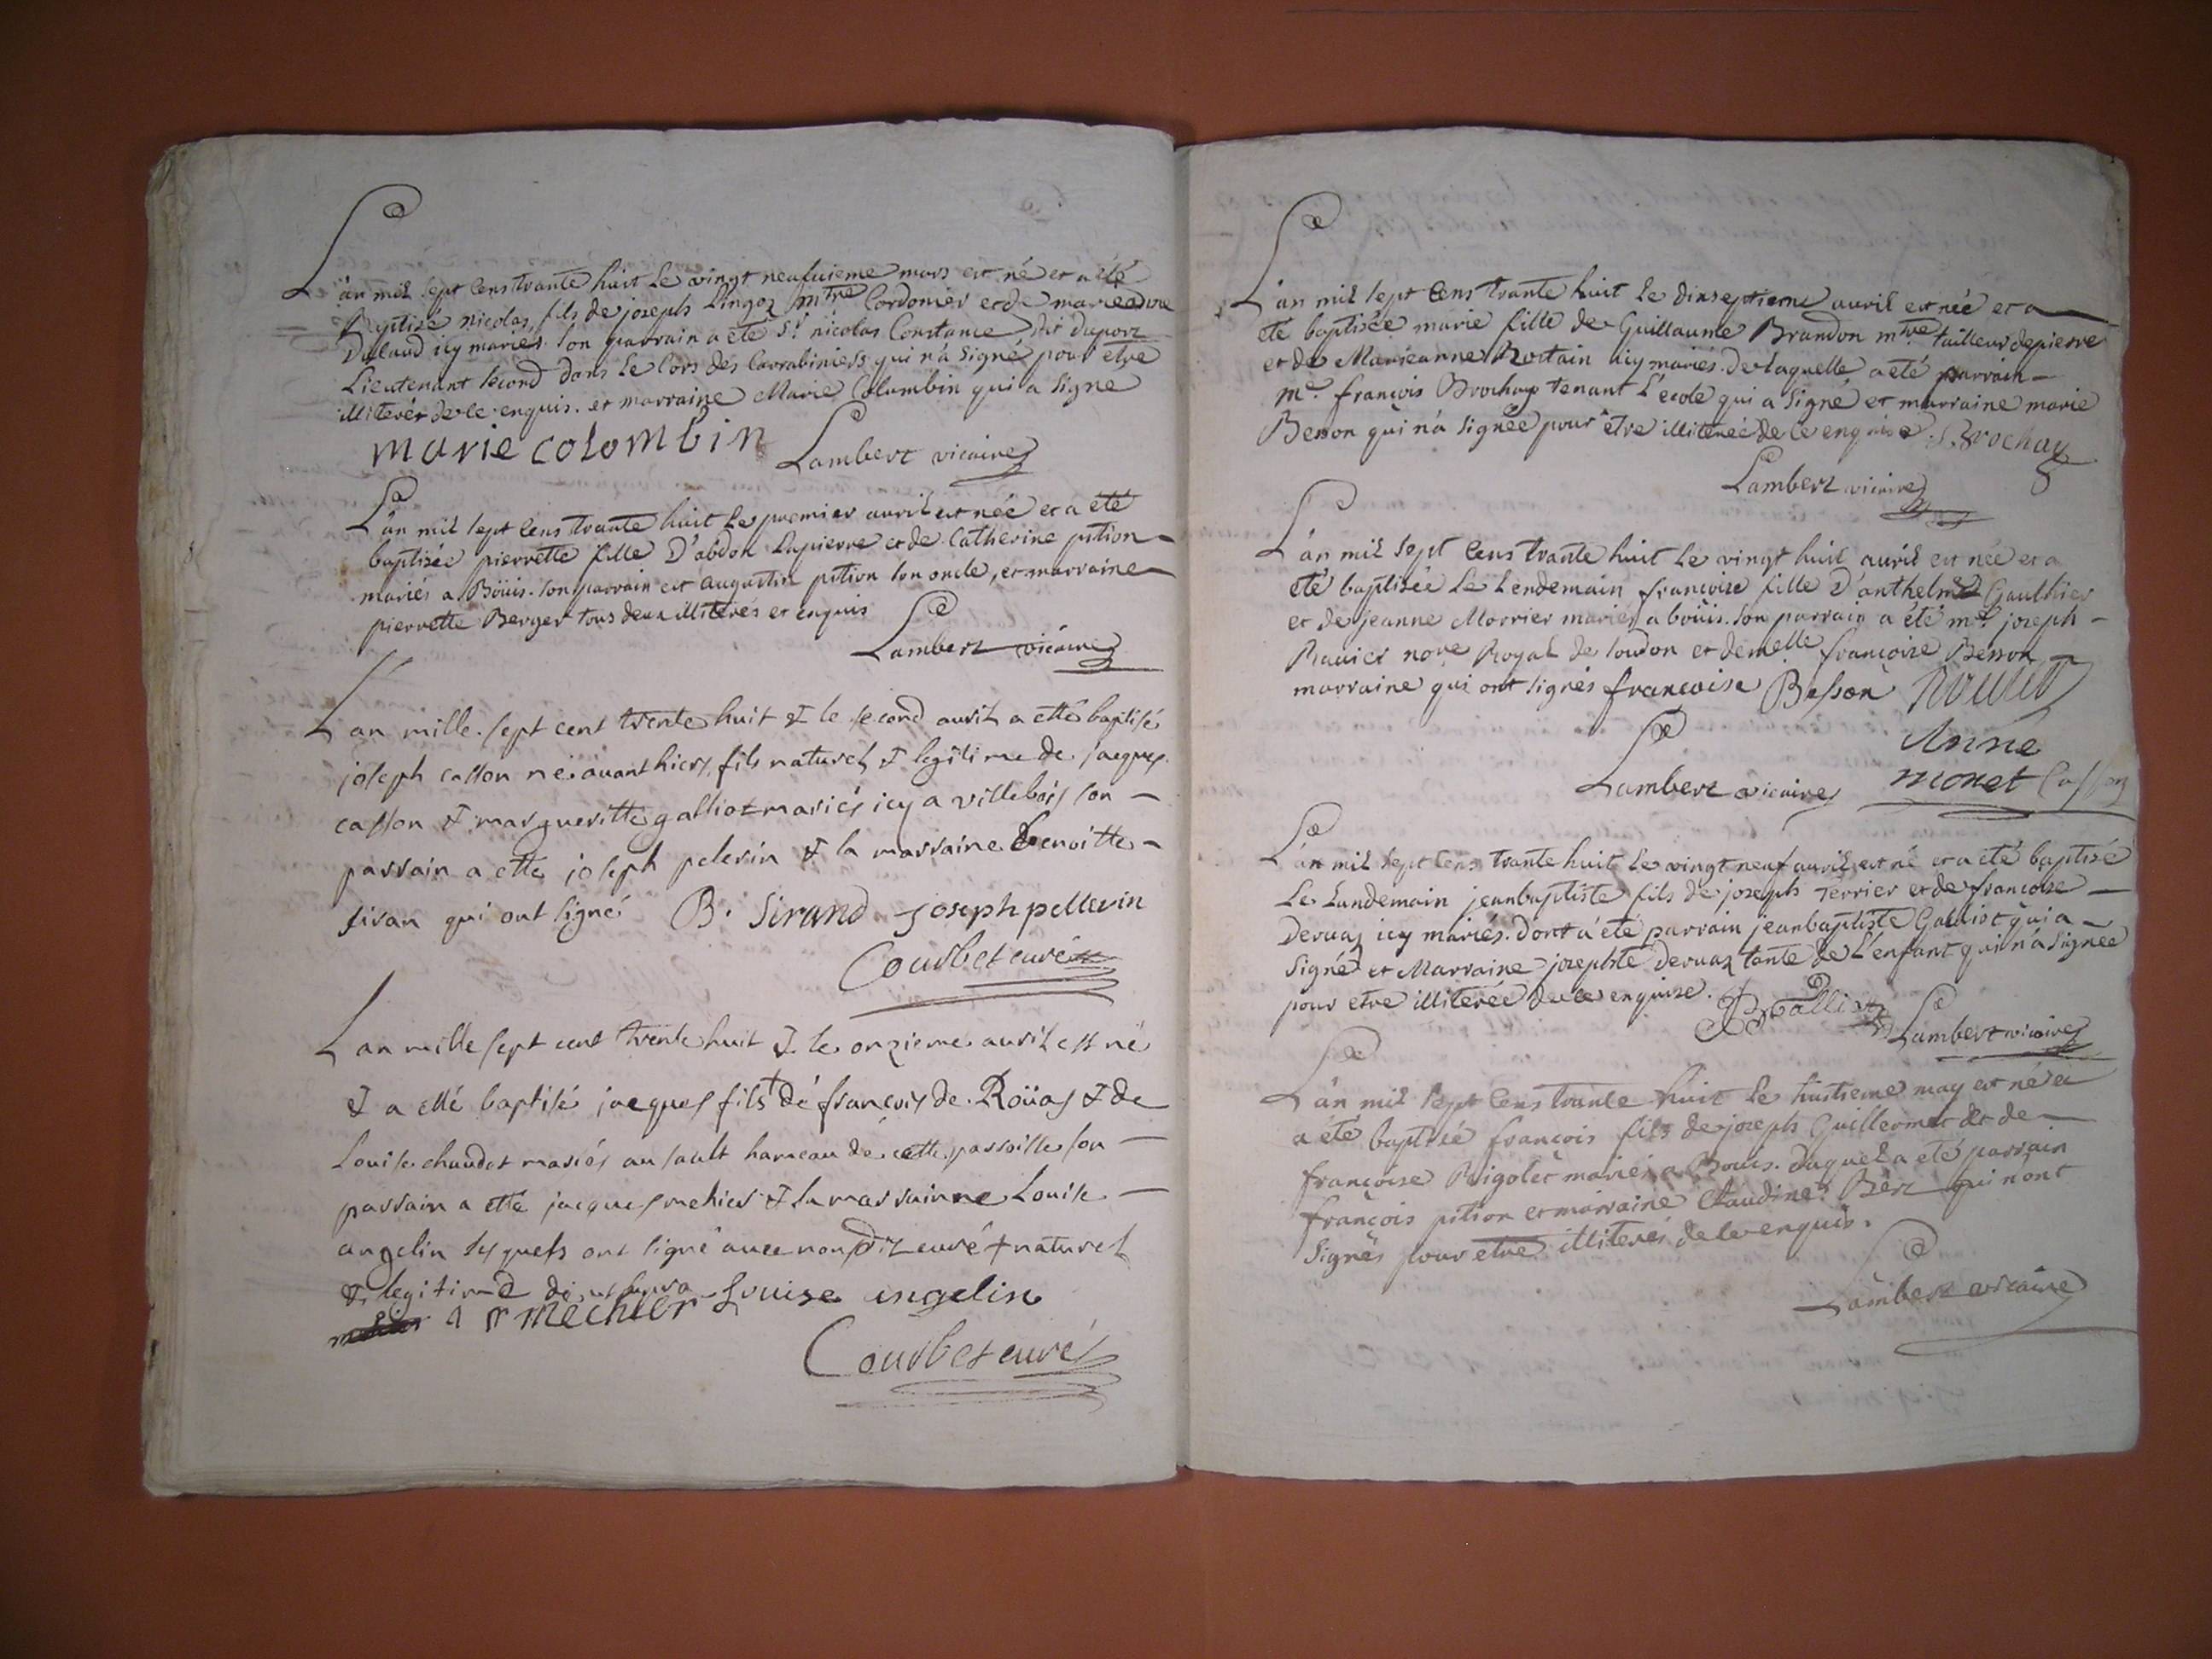 L'an mil sept cens trante huit le vingt neufuieme mars est né et a été
Baptisé nicolas, fils de joseph Lingoz mtre Cordonier et de marie
Dulaud icy mariés. son parrain a été Sr. nicolas Constance dit duport
Lieutenant second dans le Cors des Carrabiniers qui n'a signé pour etre
illiteré de ce enquis. et marraine Marie Colombin qui a signé
marie colombin Lambert vicaire
L'an mil sept cens trante huit le premier auril est née et a été
baptisée pierrette fille D'abdon Lapierre et de Catherine pition
mariés a Böuis. son parrain est augustin pition son oncle, et marraine
pierrette Berger tous deux illiterés et enquis
Lambert vicaire
Lan mille sept cent trente huit & le second auril a etté baptisé
joseph casson né auanthiers, fils naturel & legitime de jacques
casson & margueritte galliot mariés icy a villebois son
parrain a etté joseph pelerin & la marraine Benoitte
siran qui ont signé B. Sirand joseph pellerin
Courbet curé
Lan mille sept cent trente huit & le onzieme auril est né
& a etté baptisé jacques fils + de françois de Roüas & de
Louise chaudet mariés au sault hameau de cette parroisse son
parrain a etté jacques mehier & la marrainne Louise
angelin lesquels ont signé auec nousdit curé + naturel
& legitime
mechier Louise angelin
Courbet curé
L'an mil sept cens trante huit le dixseptieme auril est née et a
été baptisée marie fille de Guillaume Brandon mtre tailleur de pierre
et de Marieanne Rostain icy mariés. de laquelle a été parrain
me. françois Brochay tenant L'ecole qui a signé et marraine marie
Besson qui n'a signée pour être illiterée de ce enquise f. Brochay
Lambert vicaire
L'an mil sept cens trante huit le vingt huit auril est née et a
été baptisée le lendemain françoise fille D'anthelme Gaulthier
et de jeanne Morrier mariés a boüis. son parrain a été me. joseph
Rauier nore Royal de loudon et demelle françoise Besson
marraine qui ont signés françoise Besson Rauier
Anne
Lambert vicaire monet Casson
L'an mil sept cens trante huit le vingt neuf auril est né et a été baptisé
Le Landemain jeanbaptiste fils de joseph Terrier et de françoise
Deruaz icy mariés. dont a été parrain jeanbaptiste Galliot qui a
signé et Marraine josephte Deruaz tante de L'enfant qui n'a signée
pour etre illiterée de ce enquise. JBGalliot Lambert vicaire
L'an mil sept cens trante huit le huitieme may est né et
a été baptisé françois fils de joseph Guillermet et de
françoise Rigolet mariés a Bouis. duquel a été parrain
françois pition et marraine Claudine Berc qui n'ont
signés pour etre illiterés de ce enquis.
Lambert vicaire